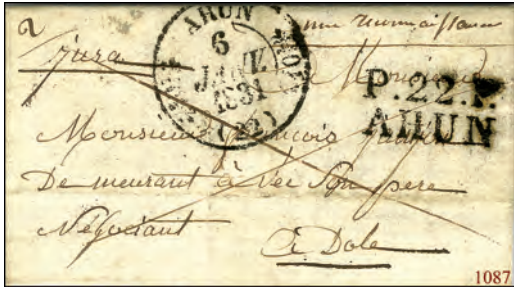 a
jura
AHUN
6
JANV.
1831
(22)
Monsieur
P.22.P.
AHUN
Monsieur françois
Demeurant à vec Son pere
Négociant
à Dole
1087